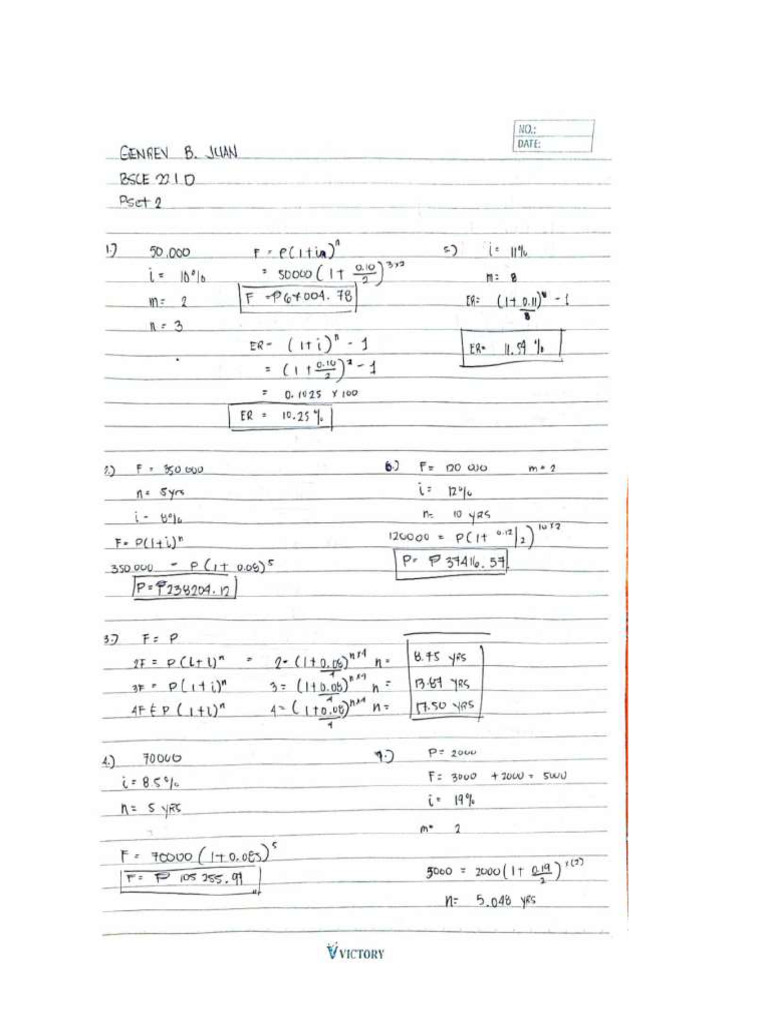 NO.:
DATE:
GENREV B. JUAN
BSCE 22 1 D
Pset 2
1.) 50,000
i = 10%
m = 2
n = 3
F = P(1+i)^n
= 50000(1 + 0.10/2)^3x2
F = ₱67004.78
ER = (1+i)^n - 1
= (1 + 0.10/2)^2 - 1
= 0.1025 x 100
ER = 10.25%
5.) i = 11%
m = 8
ER = (1 + 0.11/8)^8 - 1
ER = 11.54 %
2.) F = 350,000
n = 5yrs
i = 8%
F = P(1+i)^n
350,000 = P(1 + 0.08)^5
P = ₱238204.12
6.) F = 120 000 m = 2
i = 12%
n = 10 yrs
120000 = P(1 + 0.12/2)^10x2
P = ₱ 37416.57
3.) F = P
2F = P(1+i)^n = 2 = (1+0.08/4)^nx4 n = 8.75 yrs
3F = P(1+i)^n 3 = (1+0.08/4)^nx4 n = 13.87 yrs
4F = P(1+i)^n 4 = (1+0.08/4)^nx4 n = 17.50 yrs
4.) 70000
i = 8.5%
n = 5 yrs
F = 70000(1+0.085)^5
F = ₱ 105 255.97
7.) P = 2000
F = 3000 + 2000 = 5000
i = 19%
m = 2
5000 = 2000(1 + 0.19/2)^x(2)
n = 5.048 yrs
VICTORY